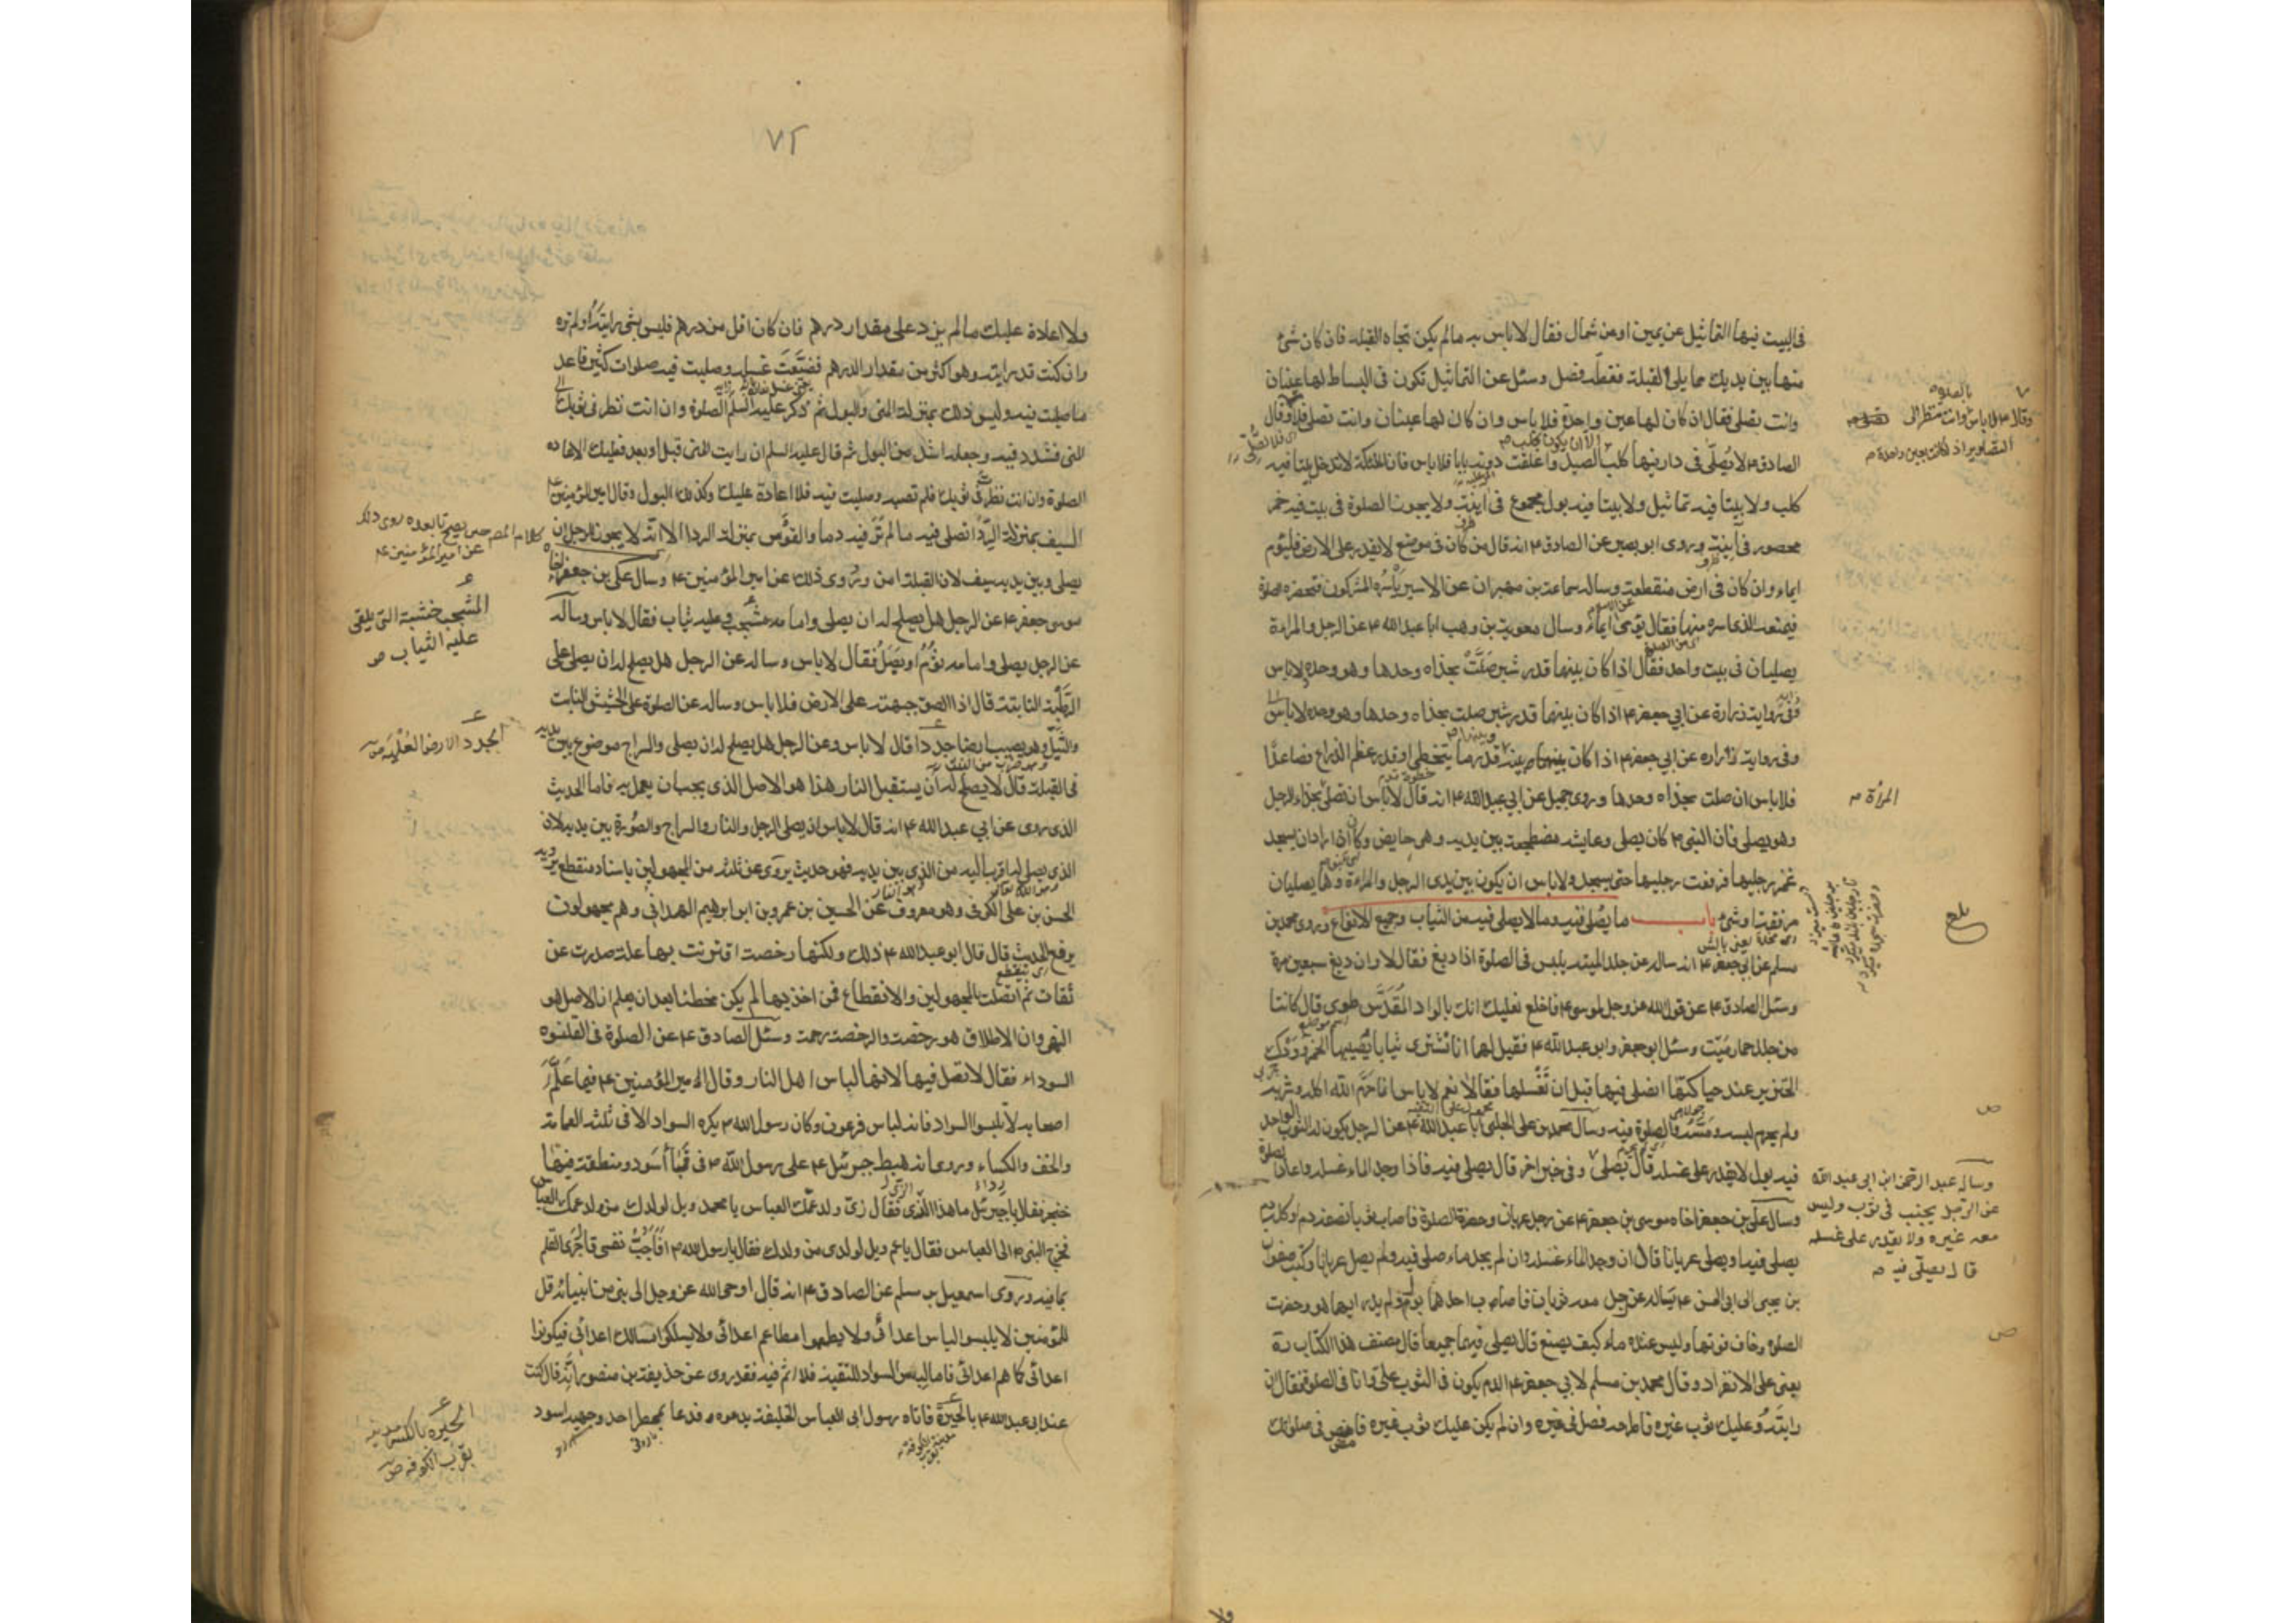 فى البيت فيها التماثيل عن يمين او عن شمال فقال لا باس به ما لم يكن تجاه القبلة فان كان شئ
منها بين يديك مما يلى القبلة فغطه فصل وسئل عن التماثيل تكون فى البساط لها عينان
وانت تصلى فقال ان كان لها عين واحدة فلا باس وان كان لها عينان وانت تصلى فلا وقال
الصادق ع لا يصلى فى دار فيها كلب الصيد واغلقت دونه بابا فلا باس فان الملئكة لا تدخل بيتا فيه
كلب ولا بيتا فيه تماثيل ولا بيتا فيه بول مجموع فى انية ولا يجوز الصلوة فى بيت فيه خمر
محصور فى انية وروى ابو بصير عن الصادق ع انه قال من كان فى موضع لا يقدر على الارض فليؤم
ايماء وان كان فى ارض منقطعة وساله سماعة بن مهران عن الاسير يأسره المشركون فتحضره الصلوة
فيمنعه الذى اسره منها فقال يؤمى ايماء وسال معوية بن وهب ابا عبد الله ع عن الرجل والمراة
يصليان فى بيت واحد فقال اذا كان بينها قدر شبر صلت بحذاه وحدها وهو وحده لا باس
وفى رواية زرارة عن ابي جعفر ع اذا كان بينها قدر شبر صلت بحذاه وحدها وهو وحده لا باس
وفى رواية زراره عن ابي جعفر ع اذا كان بينها وبينه قدر ما يتخطى او قدر عظم الذراع فصاعدا
فلا باس ان صلت بحذاه وحدها وروى جميل عن ابي عبد الله ع انه قال لا باس ان تصلى بحذاء الرجل
وهو يصلى فان النبى ص كان يصلى وعايشه مضطجعة بين يديه وهى حايض وكان اذا اراد ان يسجد
غمز رجليها فرفعت رجليها حتى يسجد ولا باس ان يكون بين يدى الرجل والمراة وهما يصليان
مرفقة او شئ باب ما يصلى فيه وما لا يصلى فيه من الثياب وجميع الانواع وروى محمد بن
مسلم عن ابي جعفر ع انه ساله عن جلد الميتة يلبس فى الصلوة اذا دبغ فقال لا وان دبغ سبعين مرة
وسئل الصادق ع عن قول الله عز وجل لموسى ع فاخلع نعليك انك بالواد المقدس طوى قال كانتا
من جلد حمار ميت وسئل ابو جعفر وابو عبد الله ع فقيل لهما انا نشترى ثيابا يصيبها الخمر وودك
الخنزير عند حياكتها انصلى فيها قبل ان نغسلها فقالا نعم لا باس انما حرم الله اكله وشربه
ولم يحرم لبسه ومسه والصلوة فيه وسال محمد بن على الحلبى ابا عبد الله ع عن الرجل يكون له الثوب الواحد
فيه بول لا يقدر على غسله قال يصلى فيه وفى خبر اخر قال يصلى فيه فاذا وجد الماء غسله واعاد الصلوة
وسال على بن جعفر اخاه موسى بن جعفر ع عن رجل عريان وحضرة الصلوة فاصاب ثوبا نصفه دم او كله دم
يصلى فيه او يصلى عريانا قال ان وجد الماء غسله وان لم يجد ماء صلى فيه ولم يصل عريانا وكتب صفوان
بن يحيى الى ابى الحسن ع يساله عن رجل معه ثوبان فاصاب احدهما بول ولم يدر ايهما هو وحضرت
الصلوة وخاف فوتها وليس عنده ماء كيف يصنع قال يصلى فيهما جميعا قال مصنف هذا الكتاب ره
يعنى على الانفراد وقال محمد بن مسلم لابي جعفر ع الدم يكون فى الثوب على وانا فى الصلوة فقال ان
رايته وعليك ثوب غيره فاطرحه فصل فى غيره وان لم يكن عليك ثوب غيره فامض فى صلوتك
وقال ع لا باس بالصلوة وانت تنظر الى
التصاوير اذا كانت بعين واحدة ص
المرأة ص
بلغ
وساله عبد الرحمن ابن ابى عبد الله
عن الرجل يجنب فى ثوب وليس
معه غيره ولا يقدر على غسله
قال يصلى فيه ص
٧٢
ولا اعادة عليك ما لم يزد على مقدار درهم فان كان اقل من درهم فليس بشئ رايته او لم تره
وان كنت قد رايته وهو اكثر من مقدار الدرهم فضيعت غسله وصليت فيه صلوات كثيرة فاعد
ما صليت فيه وليس ذلك بمنزلة المنى والبول ثم ذكر عليه السلم الصلوة وان انت نظرت فى ثوبك
المنى فشدد فيه وجعله اشد من البول ثم قال عليه السلم ان رايت المنى قبل او بعد فعليك الاعاده
الصلوة وان انت نظرت فى ثوبك فلم تصبه وصليت فيه فلا اعادة عليك وكذلك البول وقال امير المؤمنين ع
السيف بمنزلة الردا تصلى فيه ما لم تر فيه دما والقوس بمنزلة الردا الا انه لا يجوز للرجل ان
يصلى وبين يديه سيف لان القبلة امن وروى ذلك عن امير المؤمنين ع وسال على بن جعفر اخاه
موسى جعفر ع عن الرجل هل يصلح له ان يصلى وامامه مشجب عليه ثياب فقال لا باس وساله
عن الرجل يصلى وامامه ثوم او بصل فقال لا باس وساله عن الرجل هل يصلح له ان يصلى على
الرطبة النابتة قال اذا الصق جبهته على الارض فلا باس وساله عن الصلوة على الحشيش النابت
والثيل وهو يصيب ارضا جددا قال لا باس وعن الرجل هل يصلح له ان يصلى والسراج موضوع بين يديه
فى القبلة قال لا يصلح له ان يستقبل النار هذا هو الاصل الذى يجب ان يعمل به فاما الحديث
الذى روى عن ابي عبد الله ع انه قال لا باس ان يصلى الرجل والنار والسراج والصورة بين يديه لان
الذى يصلى له اقرب اليه من الذى بين يديه فهو حديث يروى عن ثلثة من المجهولين باسناد منقطع يرويه
الحسن بن على الكوفى وهو معروف عن الحسين بن عمرو بن ابو ابرهيم الهمدانى وهم مجهولون
يرفع الحديث قال قال ابو عبد الله ع ذلك ولكنها رخصة اقترنت بها علة صدرت عن
ثقات ثم اتصلت بالمجهولين والانقطاع فمن اخذ بها لم يكن مخطئا بعد ان يعلم ان الاصل هو
النهى وان الاطلاق هو رخصة والرخصة رحمة وسئل الصادق ع عن الصلوة فى القلنسوه
السوداء فقال لا تصل فيها لانها لباس اهل النار وقال امير المؤمنين ع فيما علم
اصحابه لا تلبسوا السواد فانه لباس فرعون وكان رسول الله ص يكره السواد الا فى ثلثة العمامة
والخف والكساء وروى انه هبط جبرئيل ع على رسول الله ص فى قباء اسود ومنطقة فيها
خنجر فقال يا جبرئيل ما هذا الزى فقال زى ولد عمك العباس يا محمد ويل لولدك من ولد عمك العباس
فخرج النبى ص الى العباس فقال يا عم ويل لولدى من ولدك فقال يا رسول الله ص افاجب نفسى قال جرى القلم
بما فيه وروى اسمعيل بن مسلم عن الصادق ع انه قال اوحى الله عز وجل الى نبى من انبيائه قل
للمؤمنين لا يلبسوا لباس اعدائى ولا يطعموا مطاعم اعدائى ولا يسلكوا مسالك اعدائى فيكونوا
اعدائى كما هم اعدائى فاما لبس السواد للتقية فلا اثم فيه فقد روى عن حذيفة بن منصور انه قال كنت
عند ابى عبد الله ع بالحيرة فاتاه رسول ابى العباس الخليفة يدعوه فدعا بممطر احد وجهيه اسود
كلام المص حتى يصح ما بعده روى ذلك
عن امير المؤمنين ع
المشجب خشبة التى يلقى
عليه الثياب ص
الجدد الارض الغليظة ص
الحيرة بالكسر مدينة
بقرب الكوفه ص